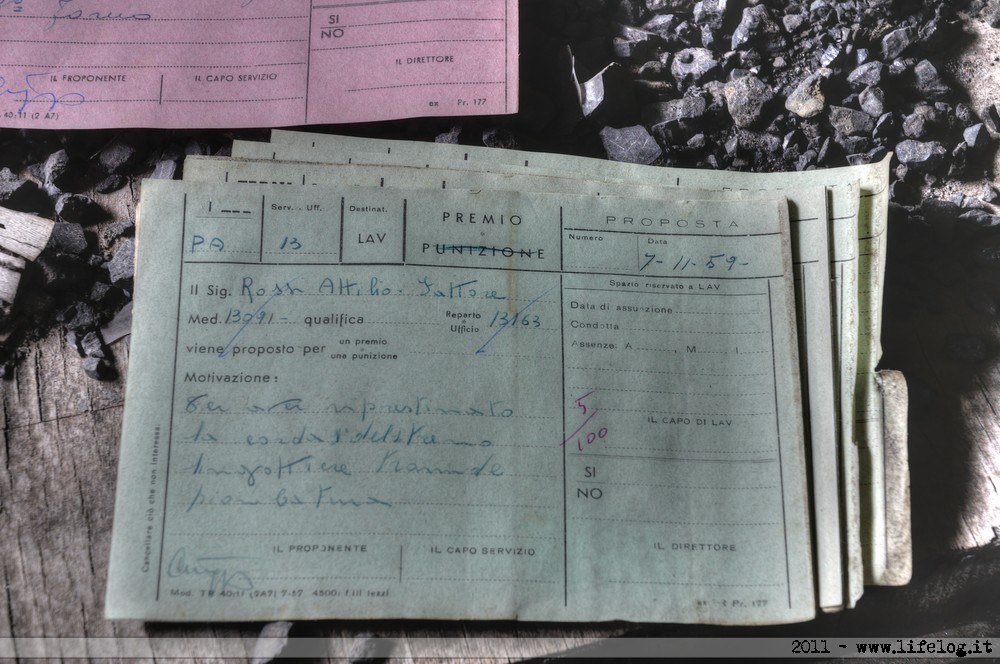 SI
NO
IL PROPONENTE
IL CAPO SERVIZIO
IL DIRETTORE
ex Pr. 177
40:11 (2 A7)
Serv. . Uff.
Destinat.
PREMIO
PROPOSTA
PA
13
LAV
PUNIZIONE
Numero
Data
7-11-59-
Il Sig. Rossi Attilio -
Spazio riservato a LAV
Med. 13091 - qualifica
Reparto
o
Ufficio
13163
Data di assunzione
Condotta
viene proposto per
un premio
o
una punizione
Assenze: A , M , I
Motivazione:
Per aver ripristinato
la corda del treno
lingottiere tramite
piombatura
5/100
IL CAPO DI LAV
SI
NO
Cancellare ciò che non interessa.
IL PROPONENTE
IL CAPO SERVIZIO
IL DIRETTORE
Mod. TB 40:11 (2A7) 7-57 4500: f.lli Iezzi
Pr. 177
2011 - www.lifelog.it